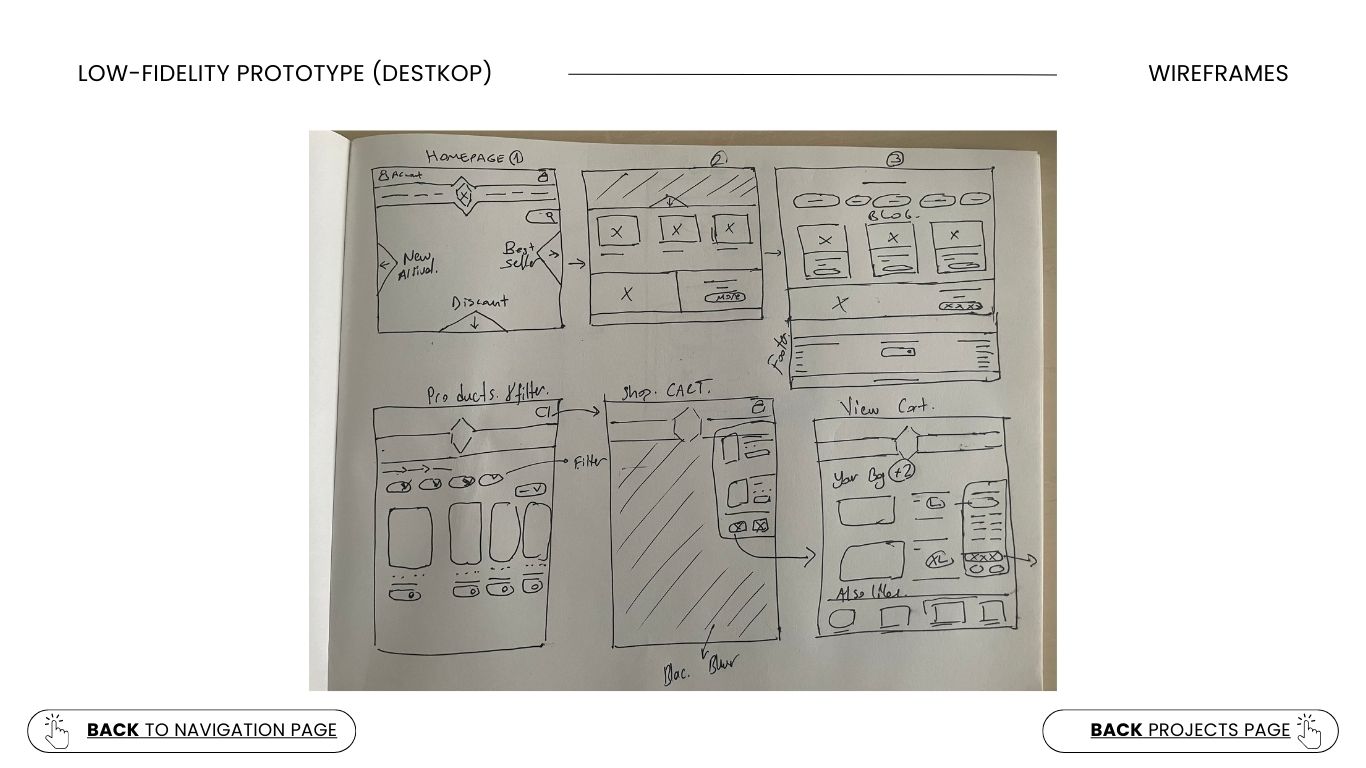 LOW-FIDELITY PROTOTYPE (DESTKOP)
WIREFRAMES
HOMEPAGE 1
2
3
Account
New
Arrival.
Best
seller
Discount
X
X
X
X
X
MORE
BLOG.
X
X
X
X
XXXX
Footer
Products. & filter.
Filter
Shop. CART.
X
X
Bac. Blur
View Cart.
Your Bag +2
L
XL
XXX
Also likes.
BACK TO NAVIGATION PAGE
BACK PROJECTS PAGE